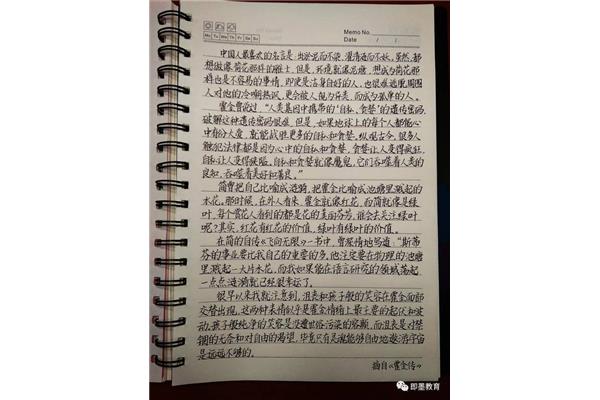 Memo No.
Mo Tu We Th Fr Sa Su
Date / /
中国人最喜欢的名言是：出淤泥而不染，濯清涟而不妖。虽然，都
想做像荷花那样的雅士，但是，环境就像泥塘，想成为荷花那
样也是不容易的事情，即使是洁身自好的人，也很难逃避周围
人对他的冷嘲热讽，更会被人视为异类，而成为孤单的人。
霍金曾说过，“人类基因中携带的‘自私、贪婪’的遗传密码，
破解这种遗传密码很难，但是，如果地球上的每个人都能心
中有份大度，就能战胜更多的自私和贪婪。纵观古今，很多人
触犯法律都是因为心中的自私和贪婪，贪婪让人变得疯狂，
自私让人变得狭隘。自私和贪婪就像魔鬼，它们吞噬着人类的
良知，吞噬着美好和善良。”
简曾把自己比喻成涟漪，把霍金比喻成池塘里溅起的
水花。那时候，在外人看来，霍金就像红花，而简就像是绿
叶，每个赏花人看到的都是花的美丽芬芳，谁会去关注绿叶
呢？其实，红花有红花的价值，绿叶有绿叶的价值。
在简的自传《飞向无限》一书中，曾深情地写道：“斯蒂
芬的事业要比我自己的重要的多，他注定要在物理的池塘
里溅起一大片水花，而我如果能在语言研究的领域荡起
一点点涟漪就已经很幸运了。
很早以来我就注意到，沮丧和孩子般的笑容在霍金面部
交替出现，这两种表情似乎是霍金情绪上最主要的起伏和波
动。孩子般纯净的笑容是没遭世俗污染的容颜，而沮丧是对禁
锢的无奈和对自由的渴望，毕竟只有灵魂能够自由地遨游宇宙
是远远不够的。
摘自《霍金传》
即墨教育